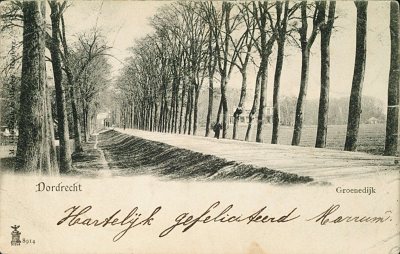 Dordrecht Groenedijk
Hartelijk gefeliciteerd
8914